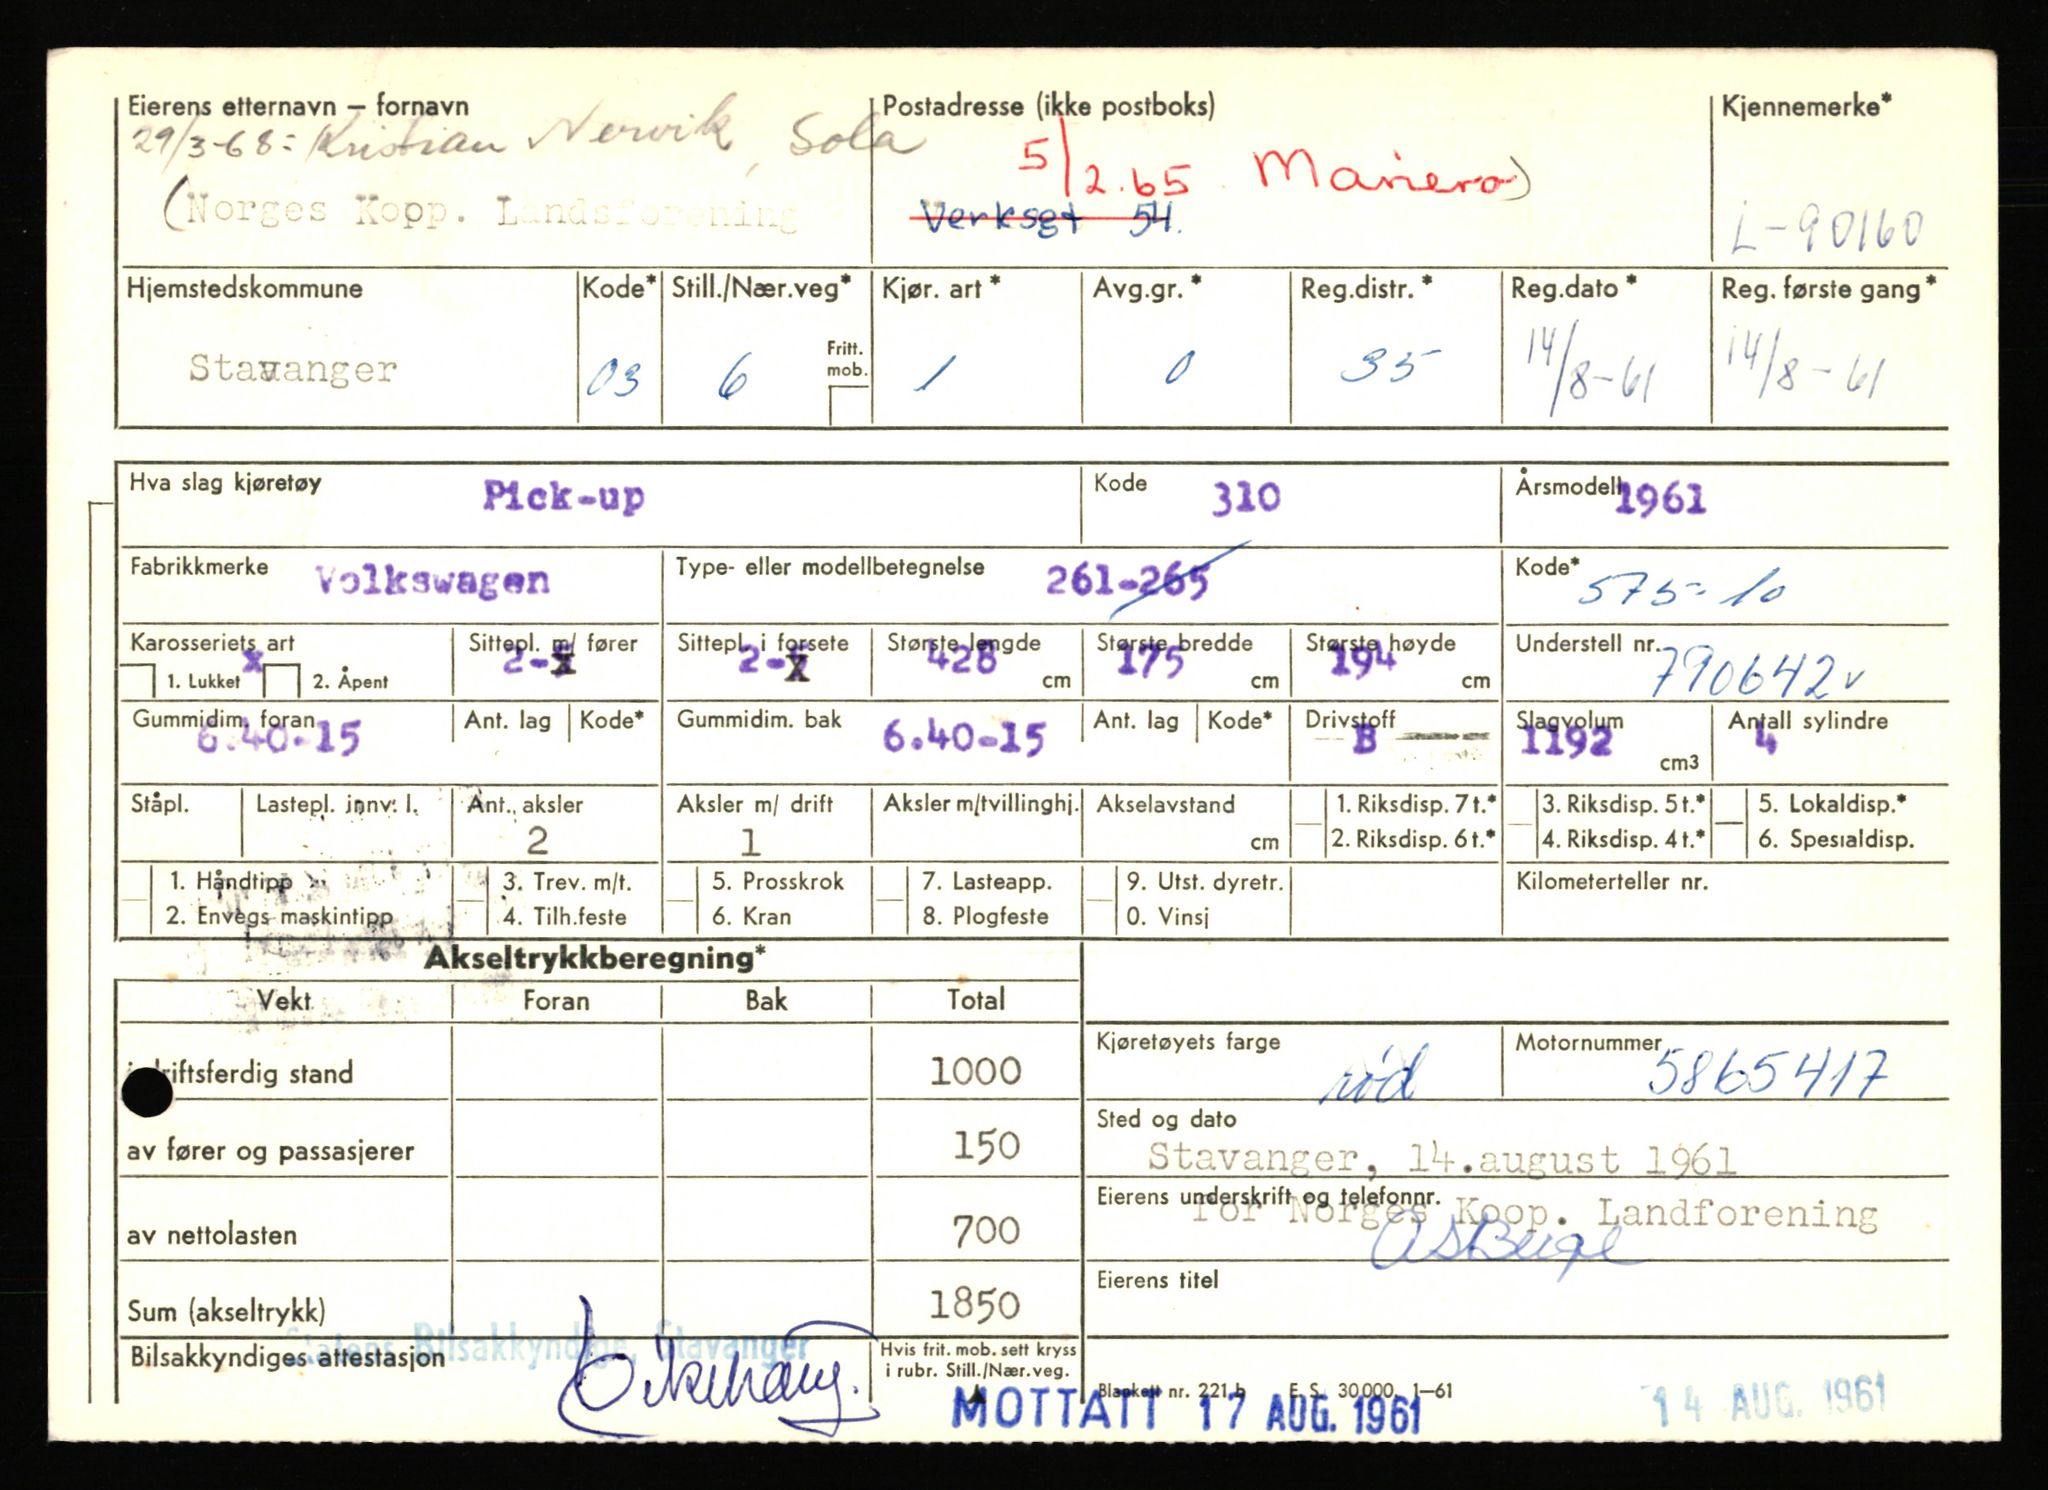 Eierens etternavn – fornavn Postadresse (ikke postboks) Kjennemerke*
29/3-68: Kristian Nervik, Sola 5/2.65. Mariero)
(Norges Kopp. Landsforening Verksgt 54. L-90160
Hjemstedskommune Kode* Still./Nær.veg* Kjør. art* Avg.gr.* Reg.distr.* Reg.dato* Reg. første gang*
Stavanger 03 6 Fritt. mob. 1 0 35 14/8-61 14/8-61
Hva slag kjøretøy Pick-up Kode 310 Årsmodell 1961
Fabrikkmerke Volkswagen Type- eller modellbetegnelse 261-265 Kode* 575-10
Karosseriets art Sittepl. m/ fører Sittepl. i forsete Største lengde Største bredde Største høyde Understell nr.
x 2- 2- 428 175 194 790642 v
1. Lukket 2. Åpent cm cm cm
Gummidim. foran Ant. lag Kode* Gummidim. bak Ant. lag Kode* Drivstoff Slagvolum Antall sylindre
6.40-15 6.40-15 B 1192 cm3 4
Ståpl. Lastepl. innv. l. Ant. aksler Aksler m/ drift Aksler m/tvillinghj. Akselavstand 1. Riksdisp. 7 t.* 3. Riksdisp. 5 t.* 5. Lokaldisp.*
2 1 cm 2. Riksdisp. 6 t.* 4. Riksdisp. 4 t.* 6. Spesialdisp.
1. Håndtipp 3. Trev. m/t. 5. Prosskrok 7. Lasteapp. 9. Utst. dyretr. Kilometerteller nr.
2. Envegs maskintipp 4. Tilh.feste 6. Kran 8. Plogfeste 0. Vinsj
Akseltrykkberegning*
Vekt Foran Bak Total
i driftsferdig stand 1000
Kjøretøyets farge rød Motornummer 5865417
av fører og passasjerer 150
Sted og dato
Stavanger, 14.august 1961
av nettolasten 700
Eierens underskrift og telefonnr.
for Norges Koop. Landforening
Sum (akseltrykk) 1850
Eierens titel
Statens Bilsakkyndige, Stavanger
Bilsakkyndiges attestasjon Hvis frit. mob. sett kryss
i rubr. Still./Nær.veg.
Blankett nr. 221 b E. S. 30000. 1-61
MOTTATT 17 AUG. 1961 14 AUG. 1961